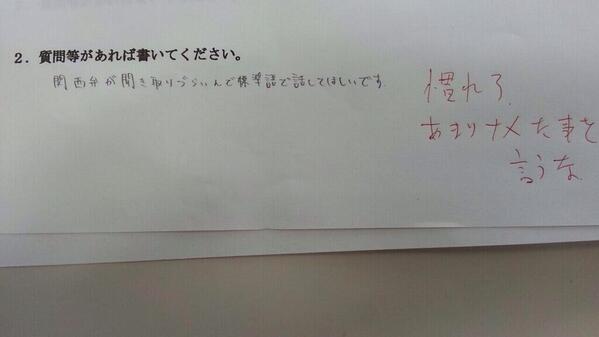 2．質問等があれば書いてください。
関西弁が聞き取りづらいんで標準語で話してほしいです。
慣れろ。
あまりナメた事を
言うな